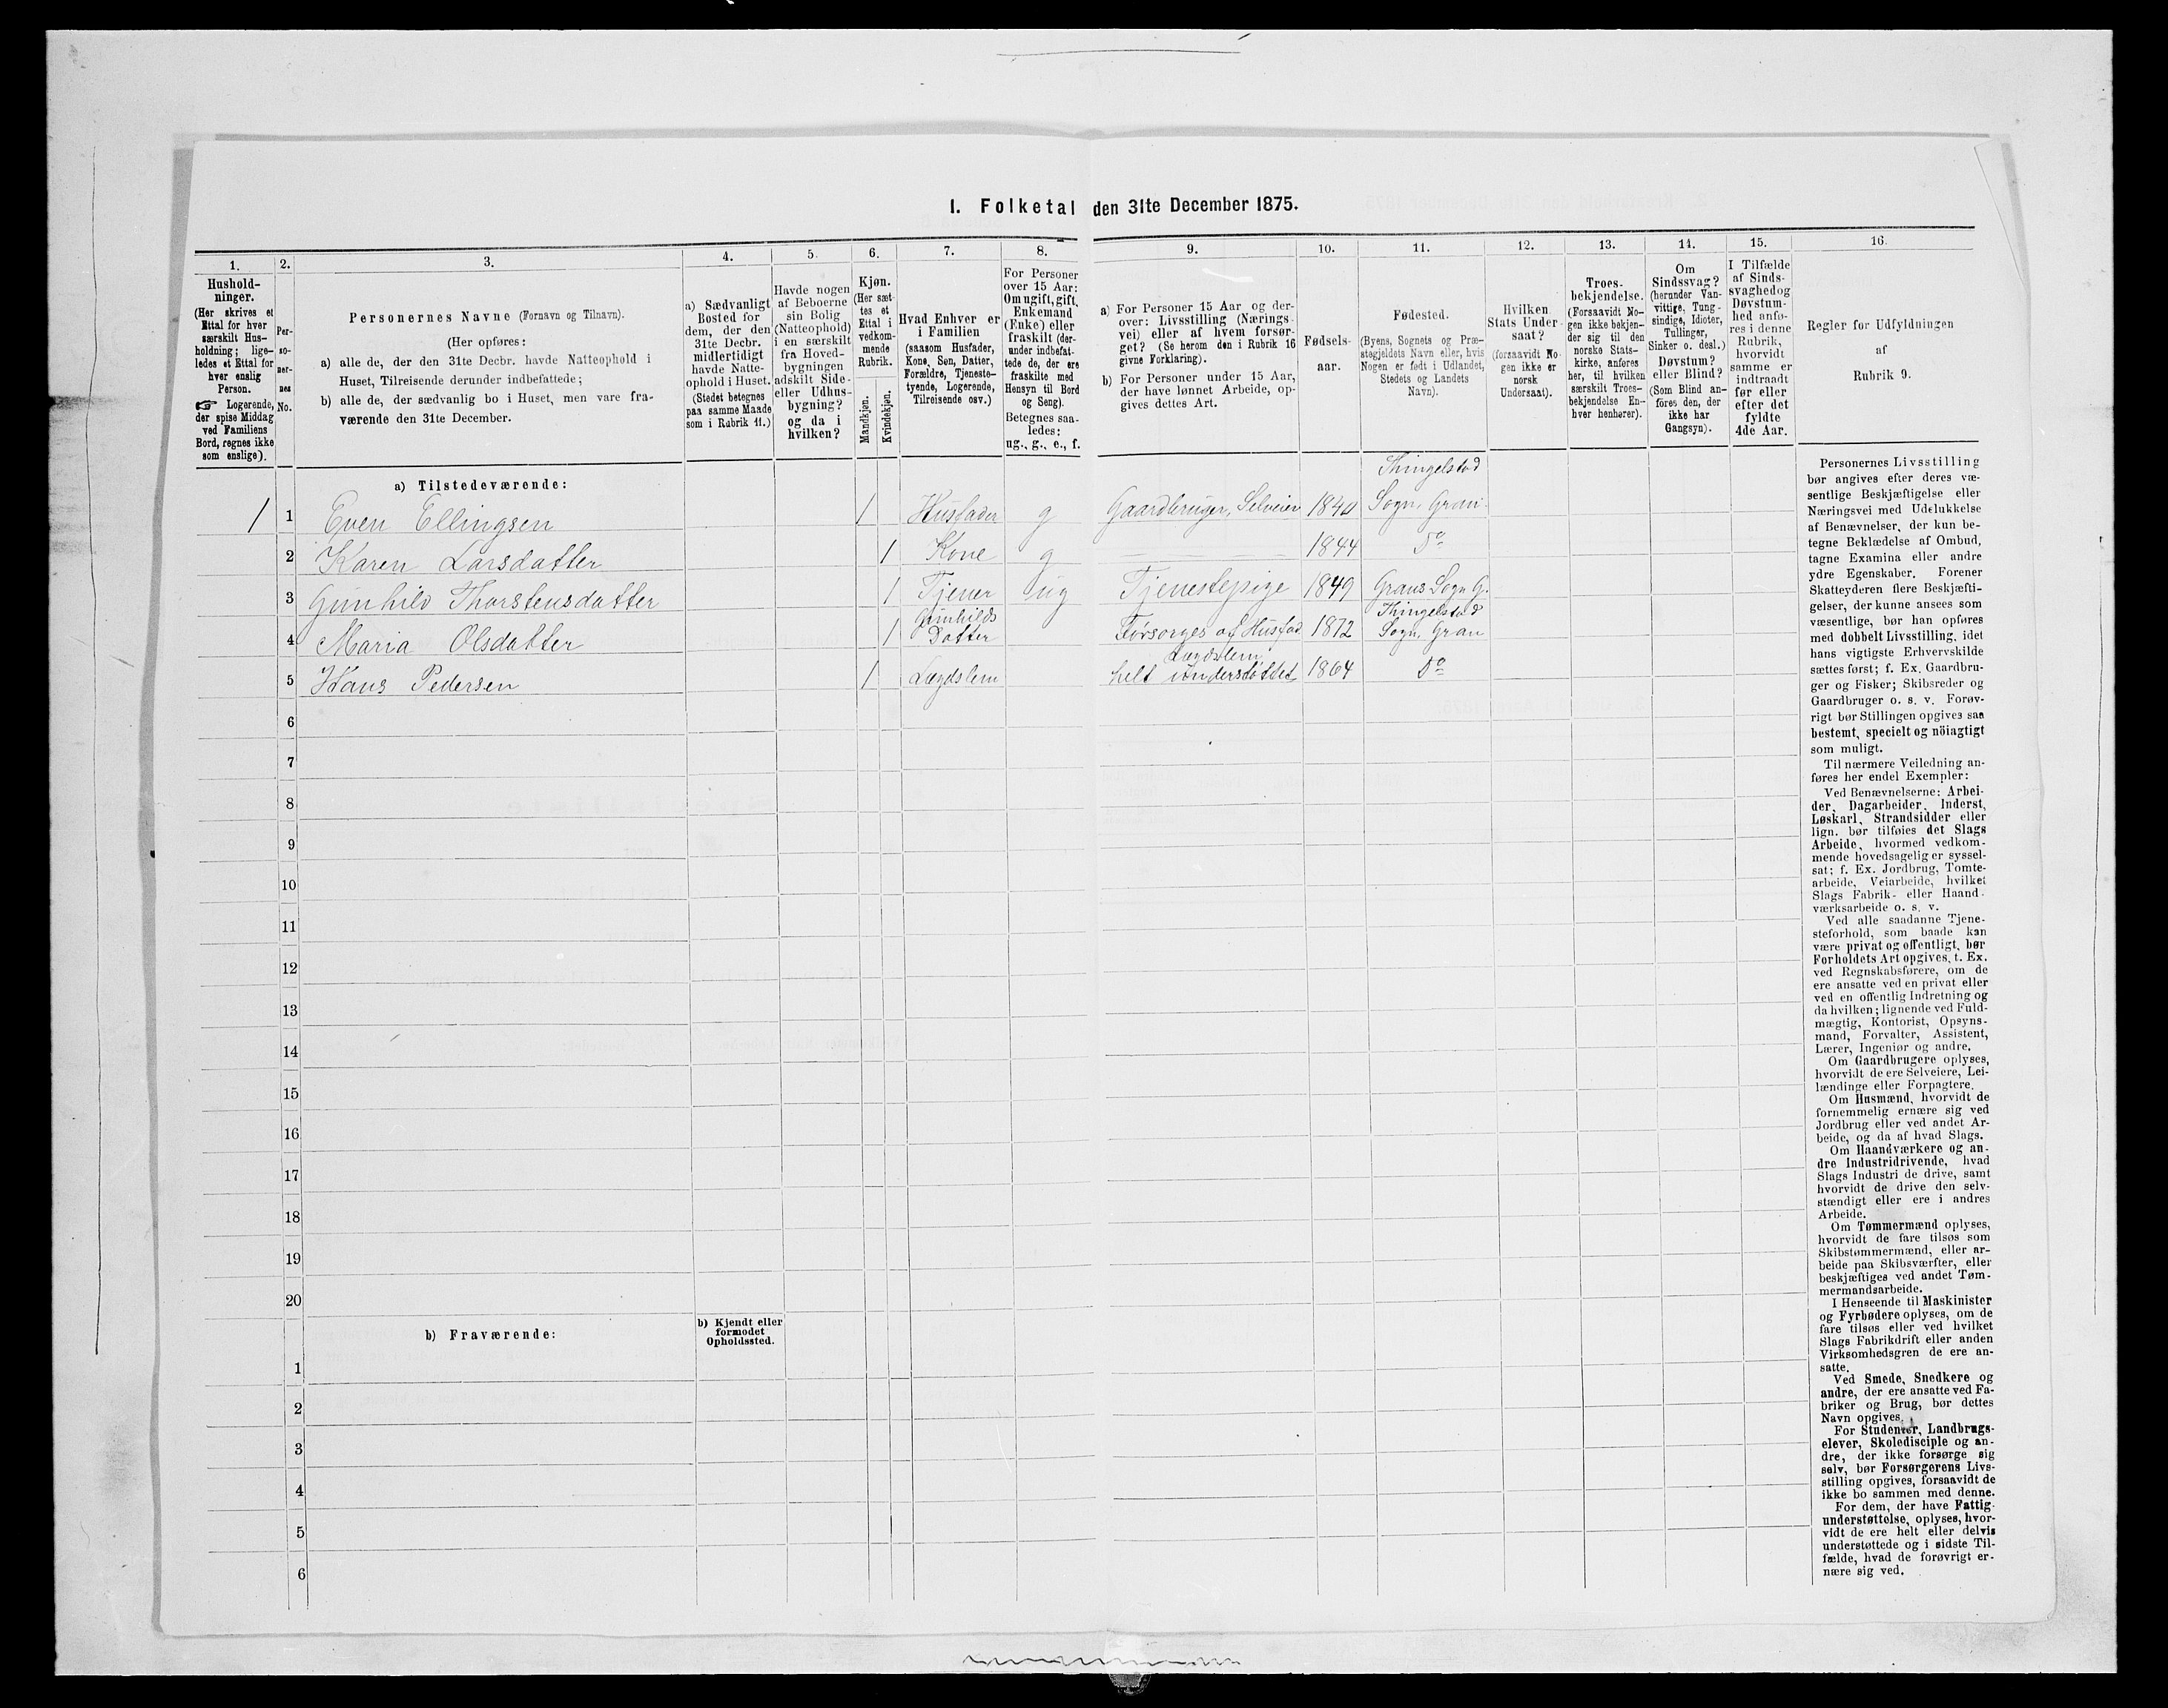 I. Folketal den 31te December 1875.
1.
Hushold-
ninger.
(Her skrives et
Ettal for hver
særskilt Hus-
holdning; lige-
ledes et Ettal for
hver enslig
Person.
☞ Logerende,
der spise Middag
ved Familiens
Bord, regnes ikke
som enslige).
2.
Per-
so-
ner-
nes
No.
3.
Personernes Navne (Fornavn og Tilnavn).
(Her opføres:
a) alle de, der den 31te Decbr. havde Natteophold i
Huset, Tilreisende derunder indbefattede;
b) alle de, der sædvanlig bo i Huset, men vare fra-
værende den 31te December.
4.
a) Sædvanligt
Bosted for
dem, der den
31te Decbr.
midlertidigt
havde Natte-
ophold i Huset.
(Stedet betegnes
paa samme Maade
som i Rubrik 11.)
5.
Havde nogen
af Beboerne
sin Bolig
(Natteophold)
i en særskilt
fra Hoved-
bygningen
adskilt Side-
eller Udhus-
bygning?
og da i
hvilken?
6.
Kjøn.
(Her sæt-
tes et
Ettal i
vedkom-
mende
Rubrik.
Mandkjøn.
Kvindekjøn.
7.
Hvad Enhver er
i Familien
(saasom Husfader,
Kone, Søn, Datter,
Forældre, Tjeneste-
tyende, Logerende,
Tilreisende osv.)
8.
For Personer
over 15 Aar:
Om ugift, gift,
Enkemand
(Enke) eller
fraskilt (der-
under indbefat-
tede de, der ere
fraskilte med
Hensyn til Bord
og Seng).
Betegnes saa-
ledes:
ug., g., e., f.
9.
a) For Personer 15 Aar og der-
over: Livsstilling (Nærings-
vei) eller af hvem forsør-
get? (Se herom den i Rubrik 16
givne Forklaring).
b) For Personer under 15 Aar,
der have lønnet Arbeide, op-
gives dettes Art.
10.
Fødsels-
aar.
11.
Fødested.
(Byens, Sognets og Præ-
stegjeldets Navn eller, hvis
Nogen er født i Udlandet,
Stedets og Landets
Navn).
12.
Hvilken
Stats Under-
saat?
(forsaavidt No-
gen ikke er
norsk
Undersaat).
13.
Troes-
bekjendelse.
(Forsaavidt No-
gen ikke bekjen-
der sig til den
norske Stats-
kirke, anføres
her, til hvilken
særskilt Troes-
bekjendelse En-
hver henhører).
14.
Om
Sindssvag?
(herunder Van-
vittige, Tung-
sindige, Idioter,
Tullinger,
Sinker o. desl.)
Døvstum?
eller Blind?
(Som Blind an-
føres den, der
ikke har
Gangsyn).
15.
I Tilfælde
af Sinds-
svaghed og
Døvstum-
hed anfø-
res i denne
Rubrik,
hvorvidt
samme er
indtraadt
før eller
efter det
fyldte
4de Aar.
16.
Regler for Udfyldningen
af
Rubrik 9.
a) Tilstedeværende:
Thingelstad
1 1 Even Ellingsen 1 Husfader g Gaardbruger, Selveier 1840 Sogn, Gran
2 Karen Larsdatter 1 Kone g 1844 Do
3 Gunhild Thorstensdatter 1 Tjener ug Tjenestepige 1849 Grans Sogn G.
Gunhilds Thingelstad
4 Maria Olsdatter 1 Datter Forsørges af Husfad. 1872 Sogn, Gran
Lægdslem,
5 Hans Pedersen 1 Lægdslem helt understøttet 1864 Do
6
7
8
9
10
11
12
13
14
15
16
17
18
19
20
b) Fraværende:
b) Kjendt eller
formodet
Opholdssted.
1
2
3
4
5
6
Personernes Livsstilling
bør angives efter deres væ-
sentlige Beskjæftigelse eller
Næringsvei med Udelukkelse
af Benævnelser, der kun be-
tegne Beklædelse af Ombud,
tagne Examina eller andre
ydre Egenskaber. Forener
Skatteyderen flere Beskjæfti-
gelser, der kunne ansees som
væsentlige, bør han opføres
med dobbelt Livsstilling, idet
hans vigtigste Erhvervskilde
sættes først; f. Ex. Gaardbru-
ger og Fisker; Skibsreder og
Gaardbruger o. s. v. Forøv-
rigt bør Stillingen opgives saa
bestemt, specielt og nöiagtigt
som muligt.
Til nærmere Veiledning an-
føres her endel Exempler:
Ved Benævnelserne: Arbei-
der, Dagarbeider, Inderst,
Løskarl, Strandsidder eller
lign. bør tilføies det Slags
Arbeide, hvormed vedkom-
mende hovedsagelig er syssel-
sat; f. Ex. Jordbrug, Tomte-
arbeide, Veiarbeide, hvilket
Slags Fabrik- eller Haand-
værksarbeide o. s. v.
Ved alle saadanne Tjene-
steforhold, som baade kan
være privat og offentligt, bør
Forholdets Art opgives, t. Ex.
ved Regnskabsførere, om de
ere ansatte ved en privat eller
ved en offentlig Indretning og
da hvilken; lignende ved Fuld-
mægtig, Kontorist, Opsyns-
mand, Forvalter, Assistent,
Lærer, Ingeniør og andre.
Om Gaardbrugere oplyses,
hvorvidt de ere Selveiere, Lei-
lændinge eller Forpagtere.
Om Husmænd, hvorvidt de
fornemmelig ernære sig ved
Jordbrug eller ved andet Ar-
beide, og da af hvad Slags.
Om Haandværkere og an-
dre Industridrivende, hvad
Slags Industri de drive, samt
hvorvidt de drive den selv-
stændigt eller ere i andres
Arbeide.
Om Tømmermænd oplyses,
hvorvidt de fare tilsøs som
Skibstømmermænd, eller ar-
beide paa Skibsværfter, eller
beskjæftiges ved andet Tøm-
mermandsarbeide.
I Henseende til Maskinister
og Fyrbødere oplyses, om de
fare tilsøs eller ved hvilket
Slags Fabrikdrift eller anden
Virksomhedsgren de ere an-
satte.
Ved Smede, Snedkere og
andre, der ere ansatte ved Fa-
briker og Brug, bør dettes
Navn opgives.
For Studenter, Landbrugs-
elever, Skoledisciple og an-
dre, der ikke forsørge sig
selv, bør Forsørgerens Livs-
stilling opgives, forsaavidt de
ikke bo sammen med denne.
For dem, der have Fattig-
understøttelse, oplyses, hvor-
vidt de ere helt eller delvis
understøttede og i sidste Til-
fælde, hvad de forøvrigt er-
nære sig ved.